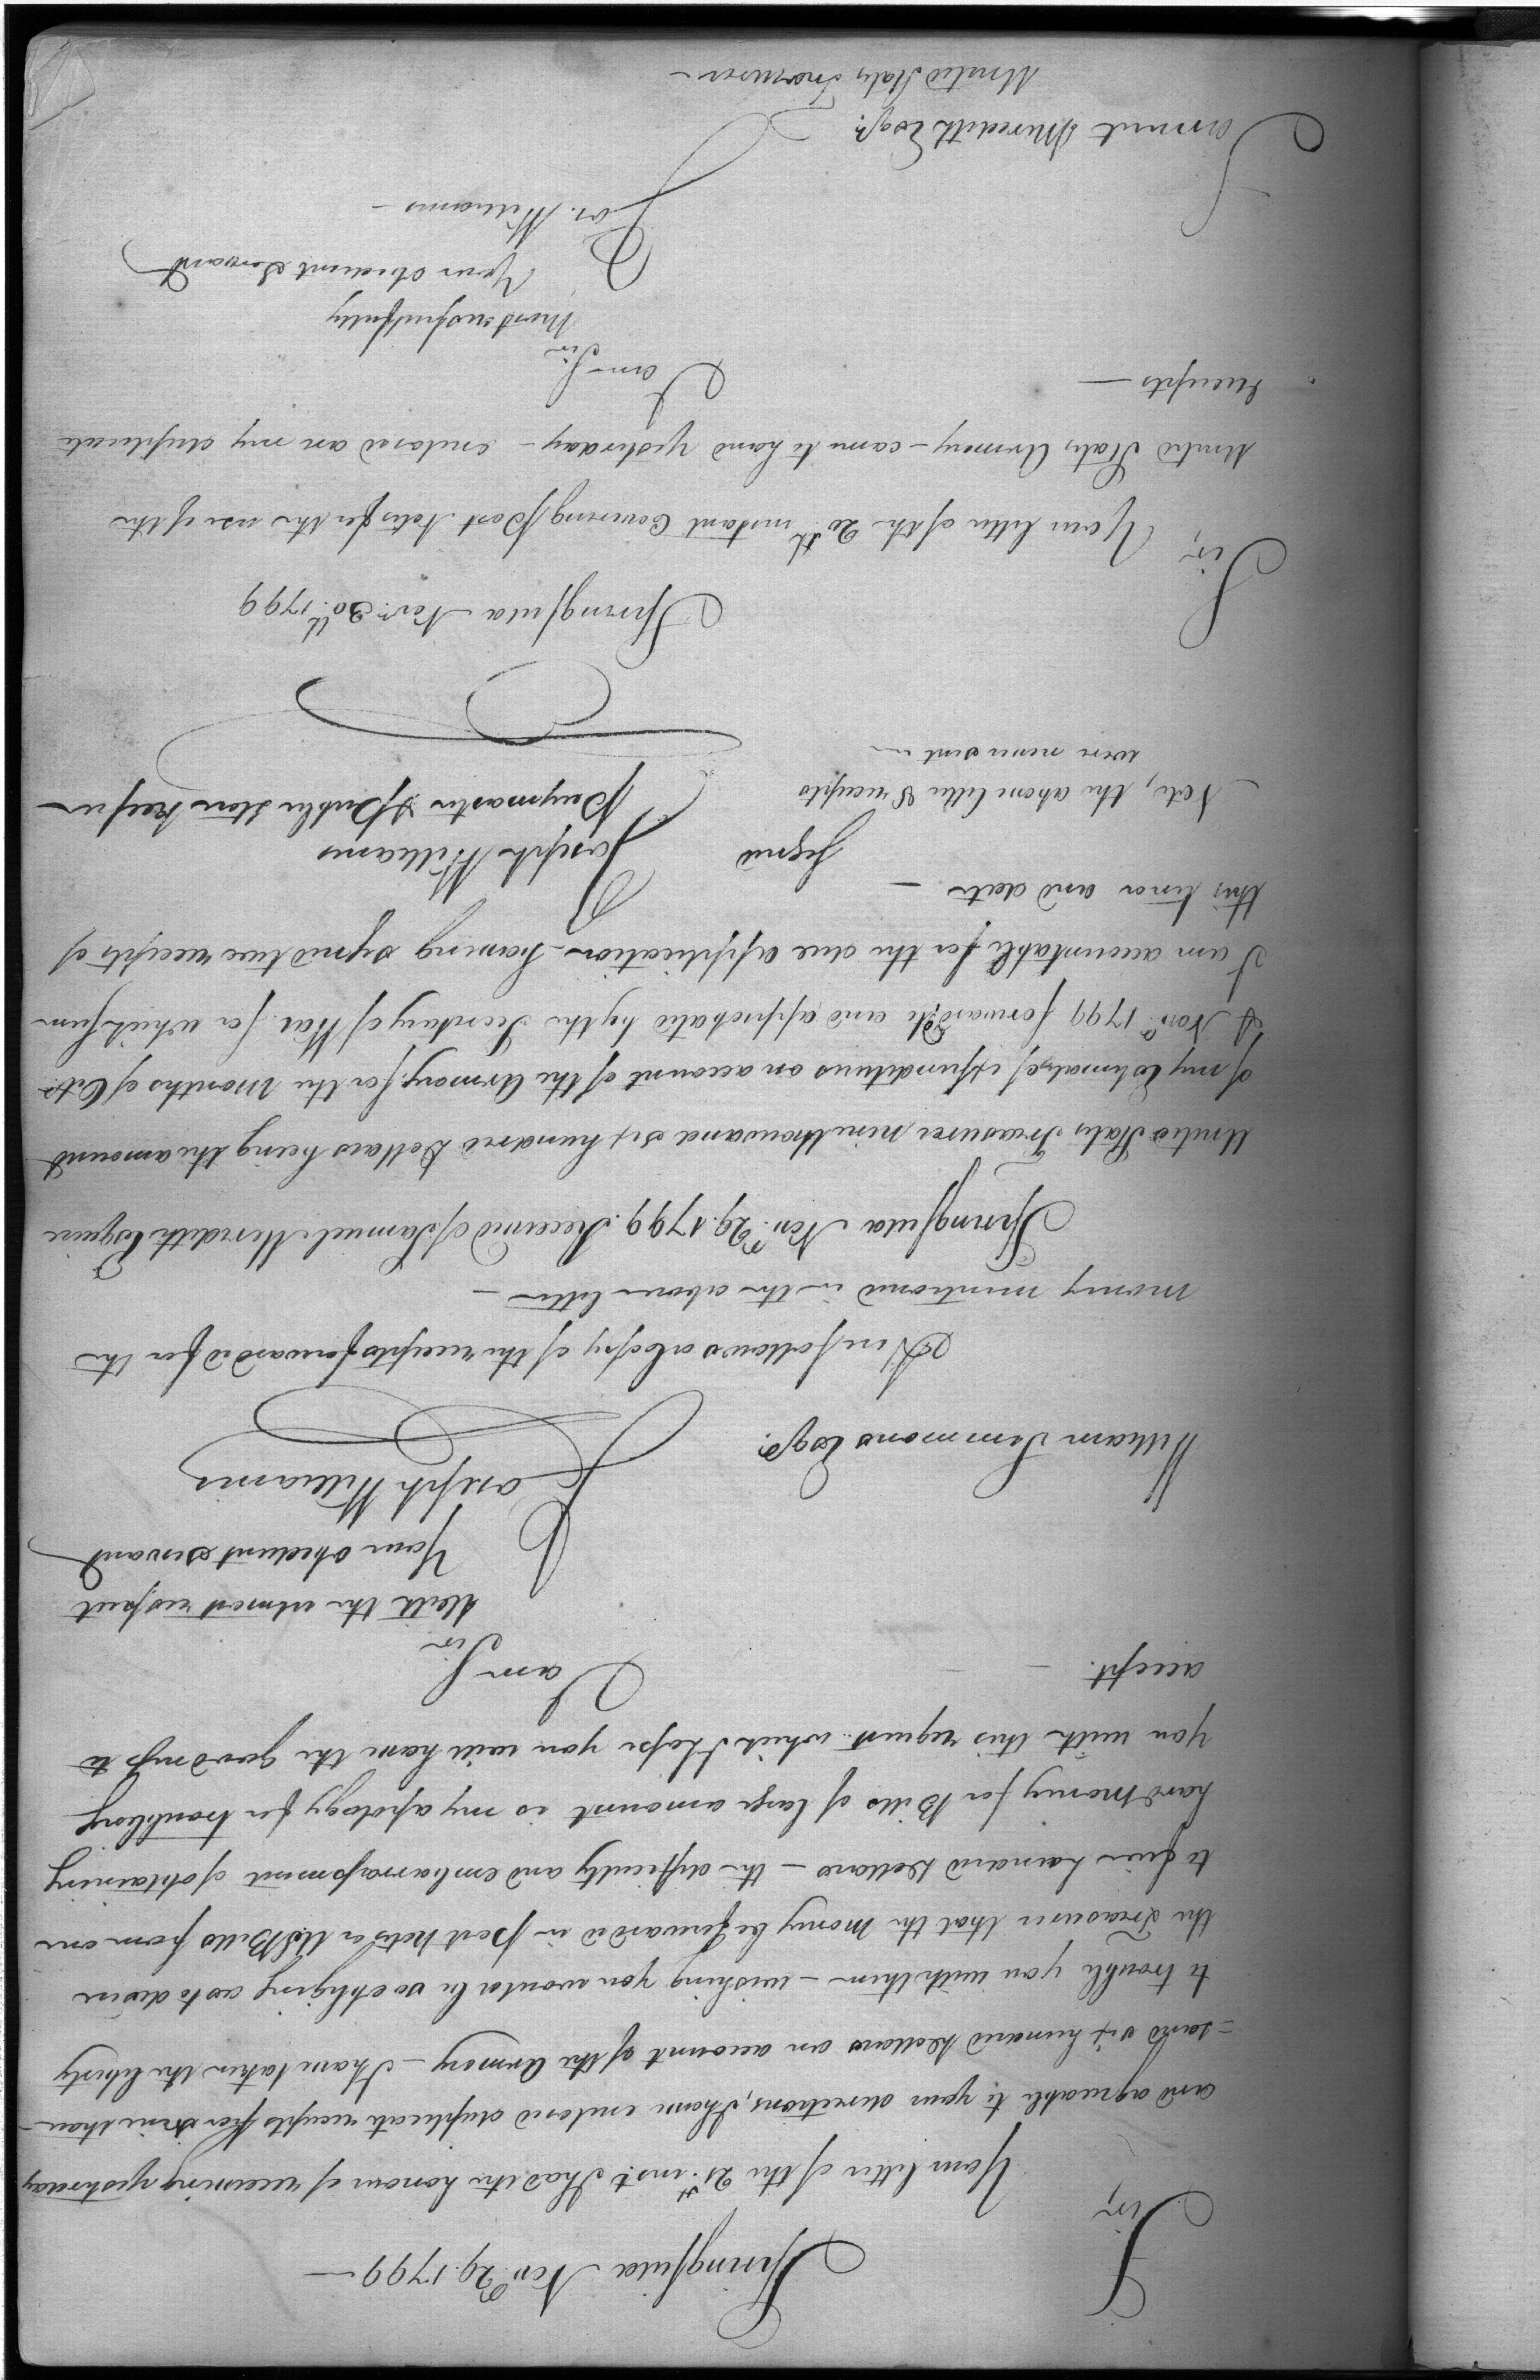 Springfield Nov.r 29. 1799 —
Sir,
Your letter of the 21.st inst. I had the honor of receiving yesterday
and agreeable to your directions, I have enclosed duplicate receipts for nine thou-
=sand six hundred Dollars on account of the Armory — I have taken the liberty
to trouble you with them — wishing you would be so obliging as to desire
the Treasurer that the Money be forwarded in post Notes or USBills from one
to five hundred Dollars — the difficulty and embarrassment of obtaining
hard Money for Bills of large amount is my apology for troubling
you with this request which I hope you will have the goodness to
accept. —
I am Sir
Sir
With the utmost respect
Your obedient servant
Joseph Williams
William Simmons Esqr.
Here follows a Copy of the receipts forwarded for the
money mentioned in the above letter —
Springfield Nov.r 29. 1799. Received of Samuel Meredith Esquire
United States Treasurer nine thousand six hundred Dollars being the amount
of my Estimate of expenditures on account of the Armory for the Months of Octo
& Nov.r 1799 forwarded to and approbated by the Secretary of War for which sum
I am accountable for the due application — having signed two receipts of
this tenor and date —
Signed
Joseph Williams
Paymaster & Public Store Keeper
Note, the above letter & receipts
were never sent —
Springfield Nov.r 30.th 1799
Sir,
Your letter of the 20.th instant Covering Post Notes for the use of the
United States Armory — came to hand yesterday — enclosed are my duplicate
Receipts —
I am Sir
Sir
Most respectfully
Your obedient Servant
Jos. Williams —
Samuel Meredith Esqr.
United States Treasurer —